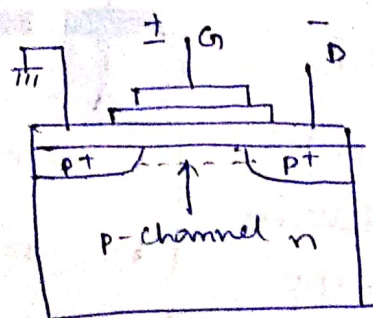 ± G −
D
p+ p+
p-channel n